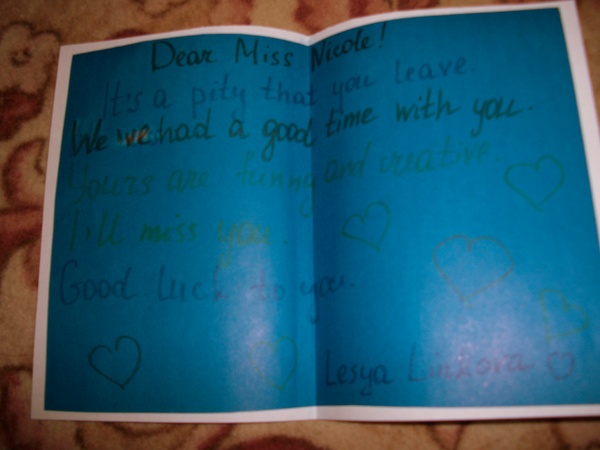 Dear Miss Nicole!
It's a pity that you leave.
We we had a good time with you.
Yours are funny and creative.
I'll miss you.
Good luck to you.
Lesya